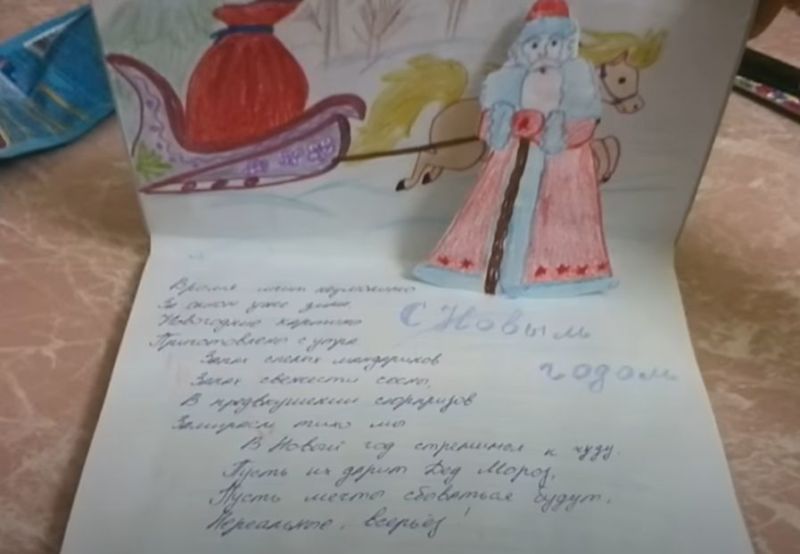 Время мчит неумолимо
За окном уже зима
Новогодние картины
Приготовлены с утра
Запах спелых мандаринов
Запах свежести сосны,
В предвкушении сюрпризов
Замираем тихо мы
В Новый год стремимся к чуду.
Пусть их дарит Дед Мороз,
Пусть мечты сбываться будут,
Нереальные, всерьёз!
С Новым
годом